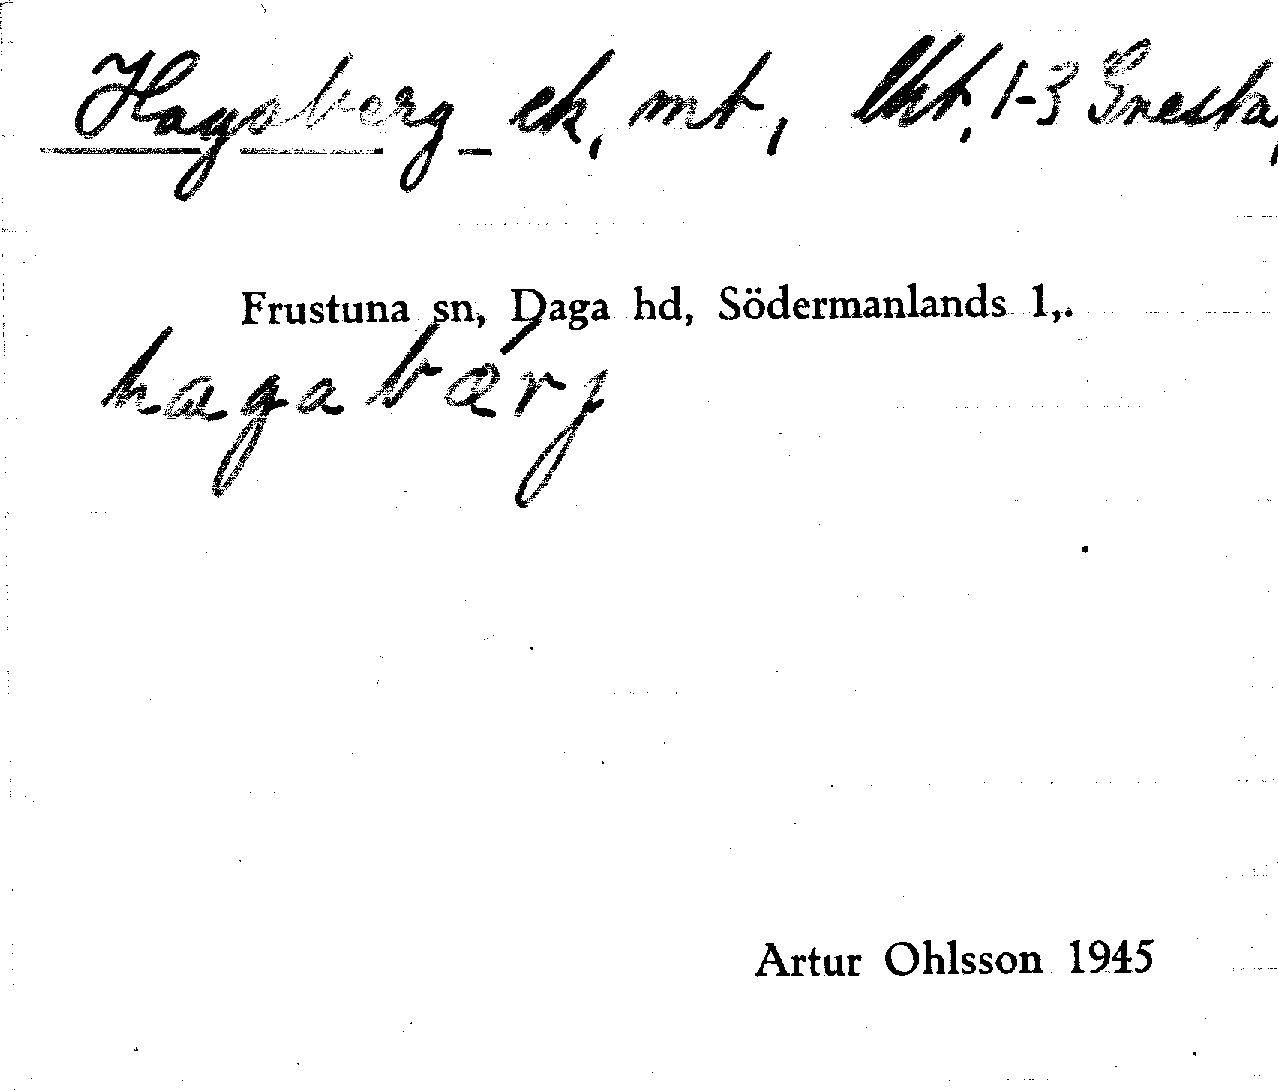 Hagaberg ek, mt, lht, 1-3 Gnesta,
Frustuna sn, Daga hd, Södermanlands l,.
hagabærj
Artur Ohlsson 1945